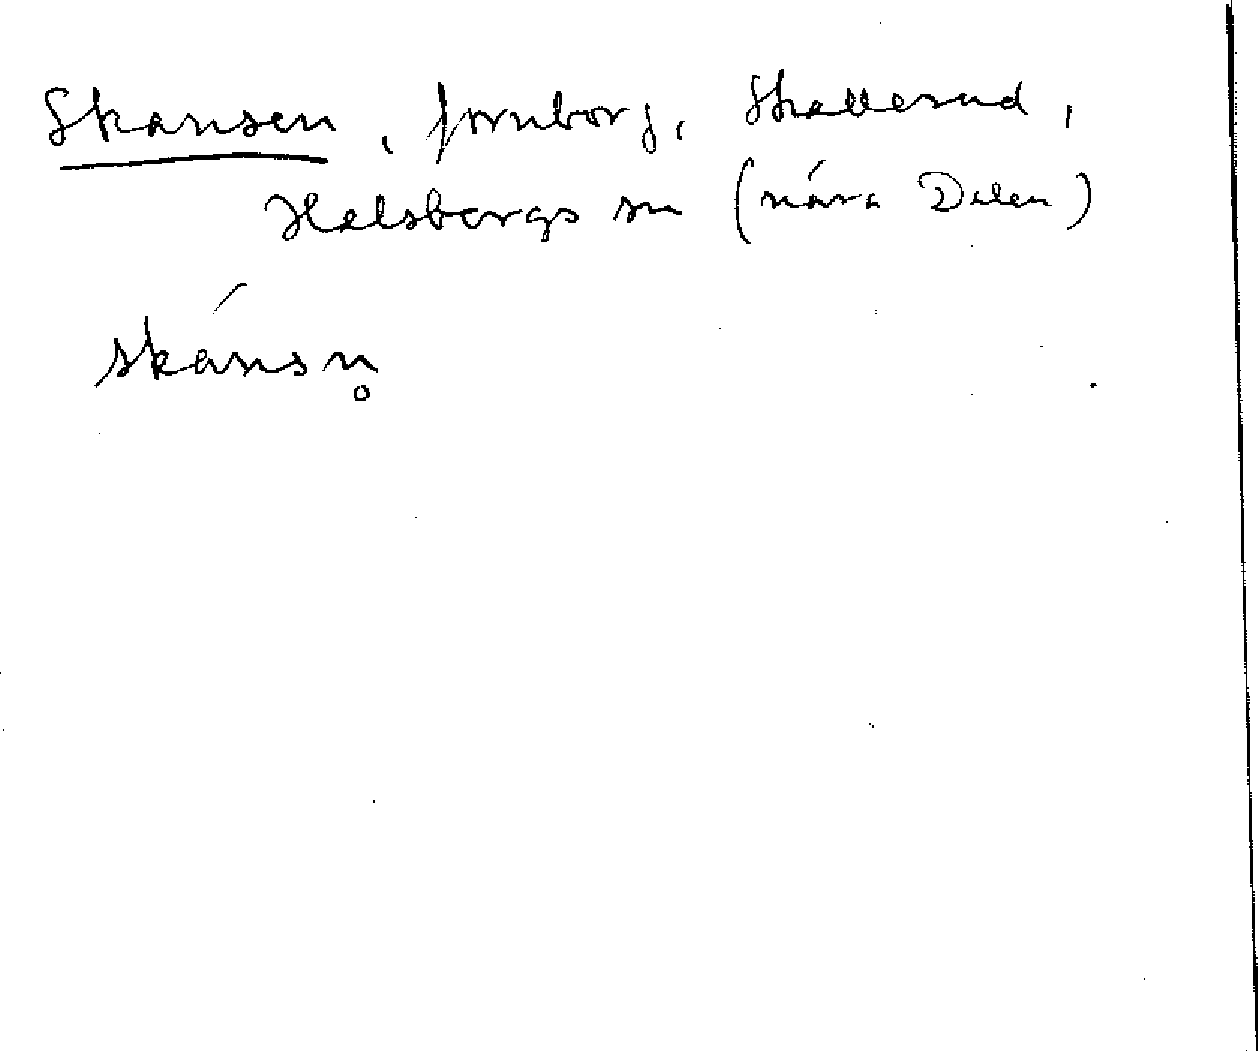 Skansen, fornborg, Skallerud,
Halsbergs sn (nära Dalen)
skánsn̥